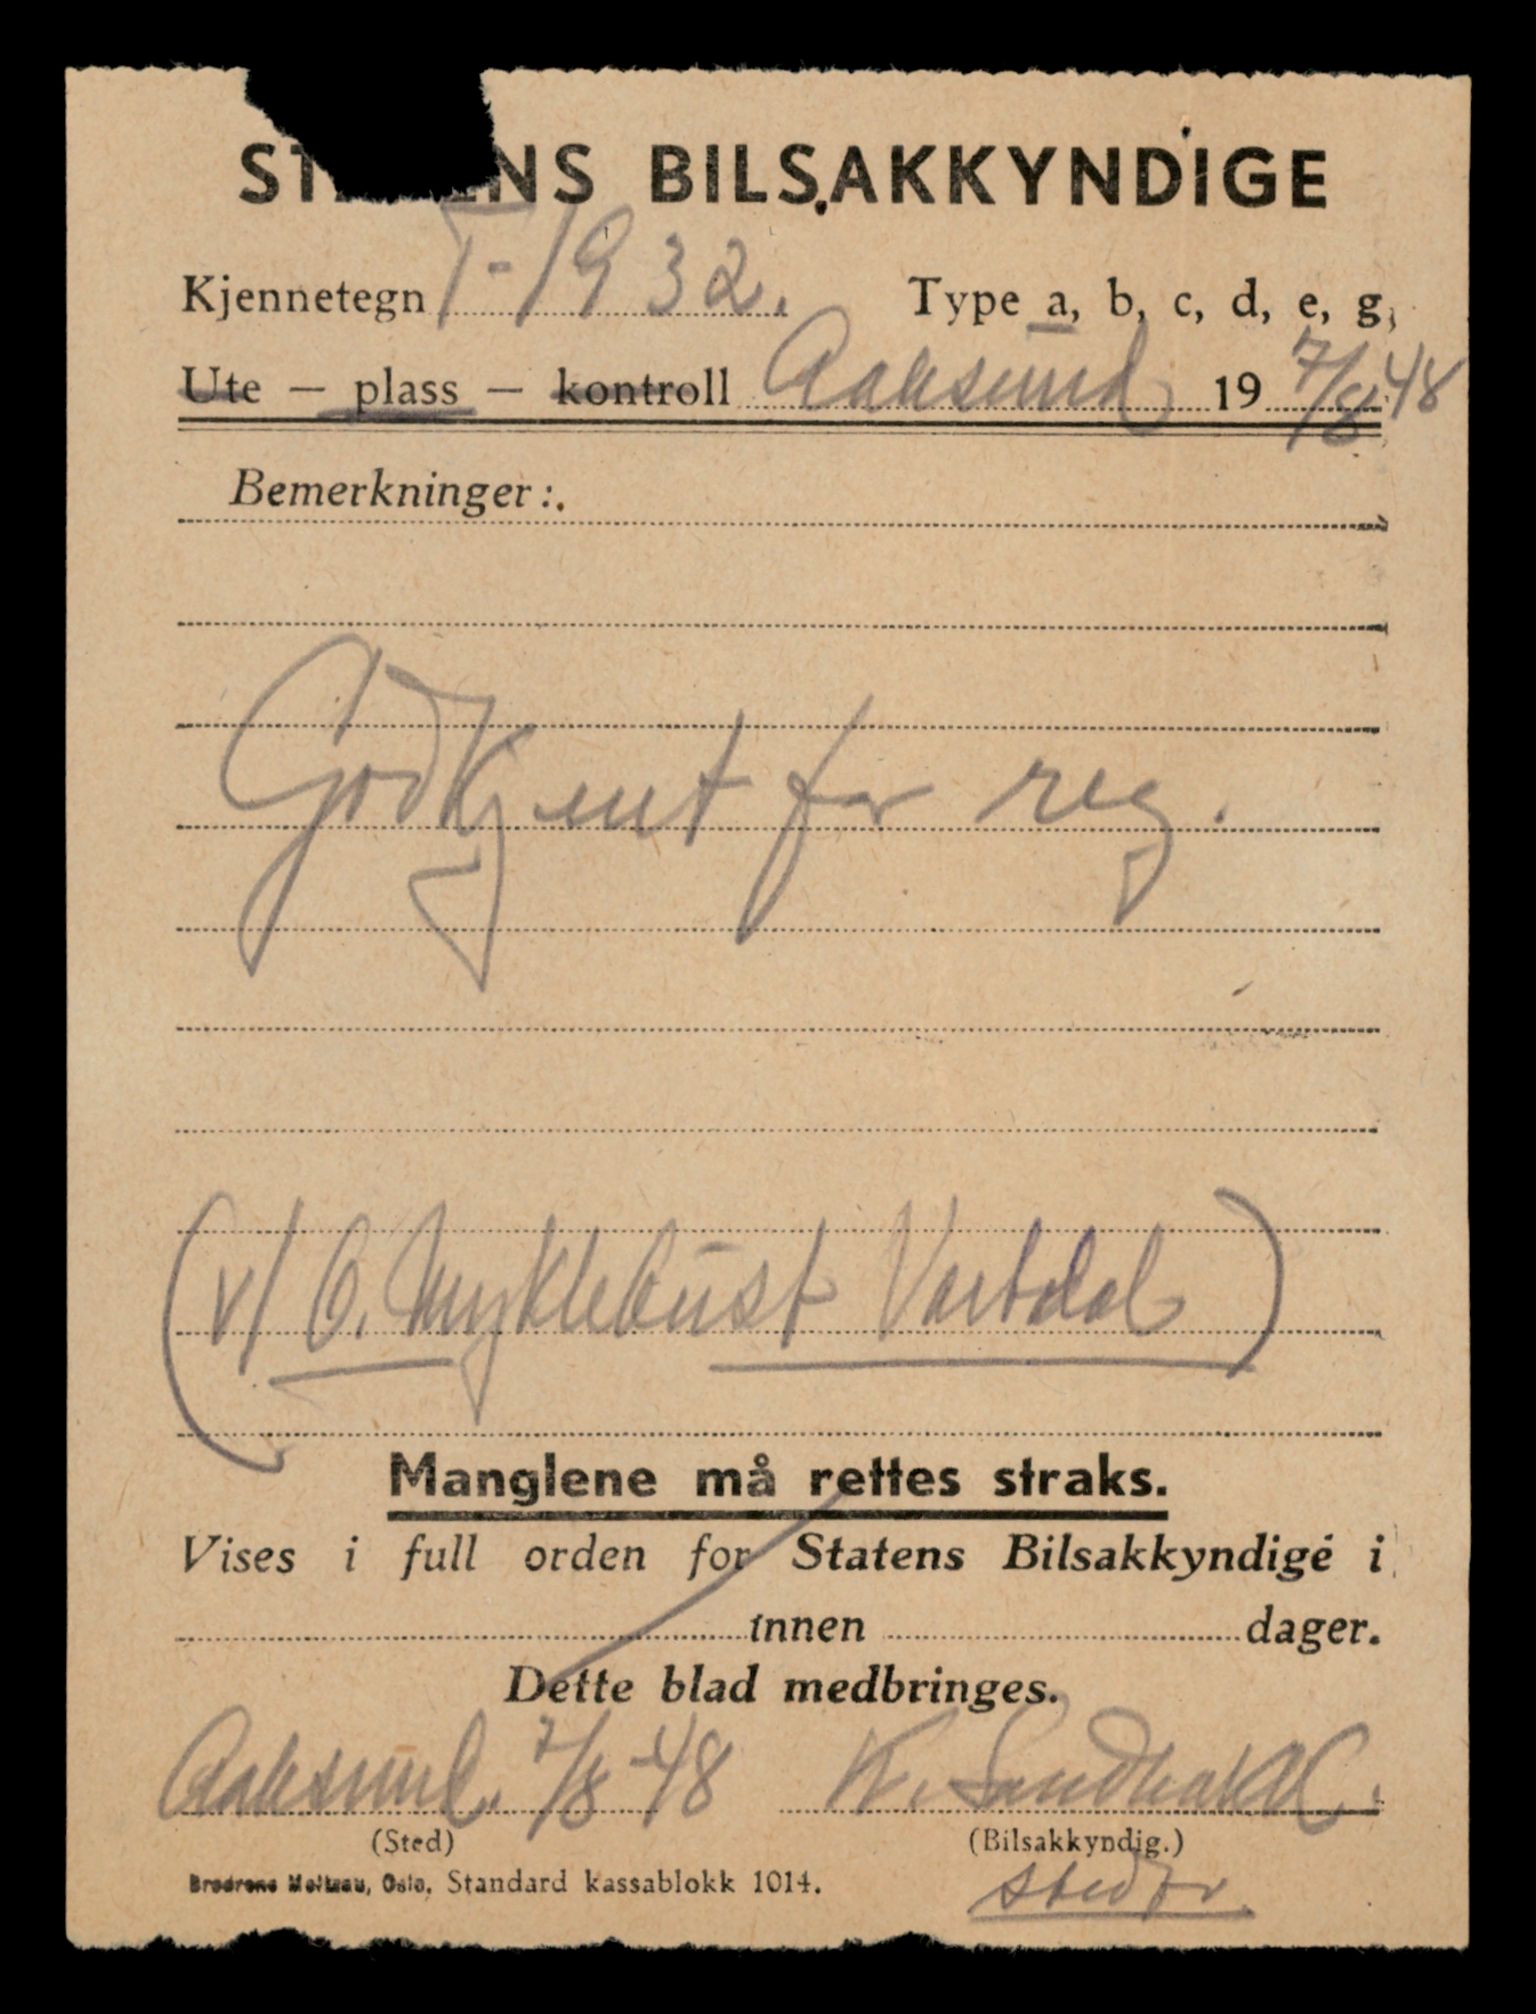 ST ENS BILSAKKYNDIGE
Kjennetegn T-1932. Type a, b, c, d, e, g,
Ute — plass — kontroll Aalesund 19 7/8 48
Bemerkninger:.
Godkjent for reg.
(v/ O. Myklebust Vartdal)
Manglene må rettes straks.
Vises i full orden for Statens Bilsakkyndige i
innen dager.
Dette blad medbringes.
Aalesund. 7/8-48 K.
(Sted) (Bilsakkyndig.)
Brødrene Meltzau, Oslo. Standard kassablokk 1014. stedfr.